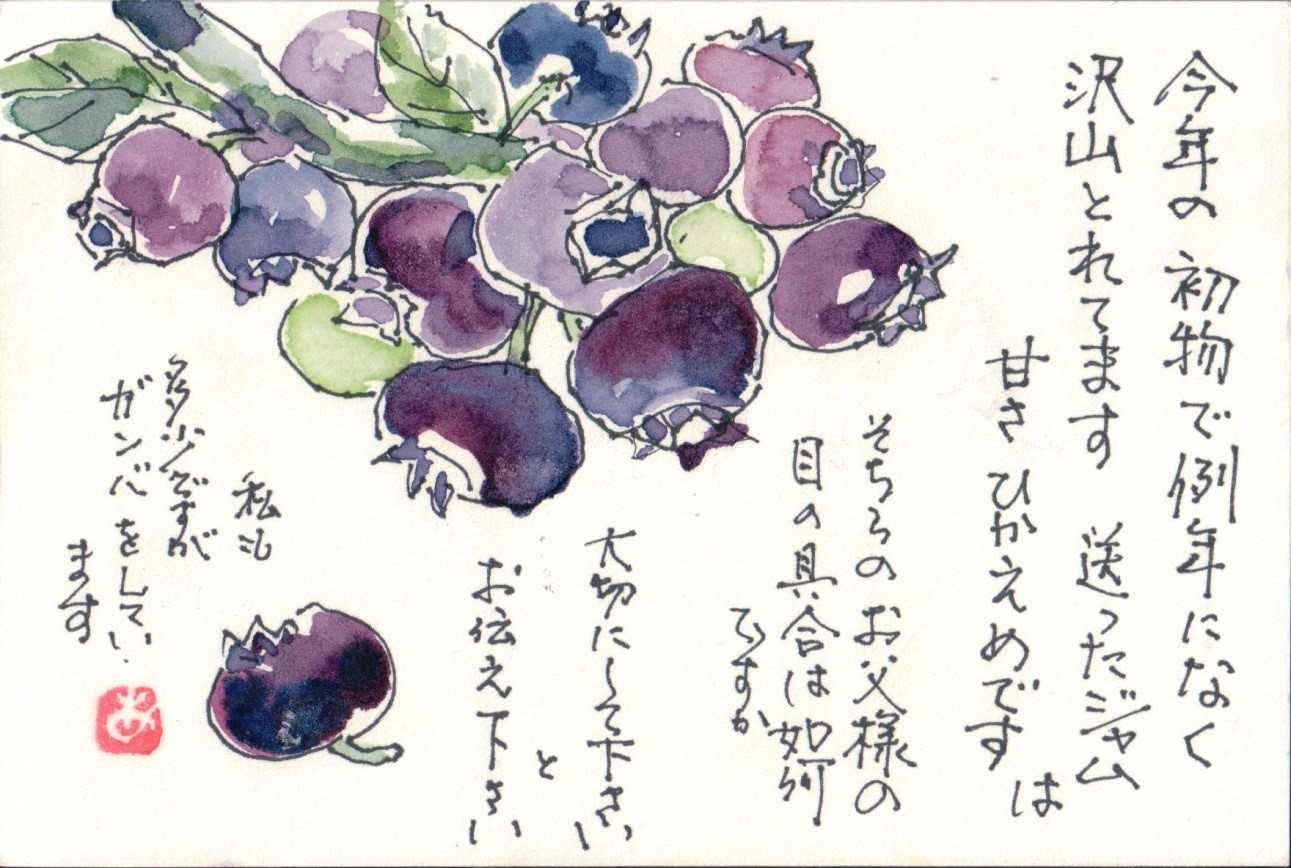 今年の 初物で例年になく
沢山とれてます 送ったジャム
は
甘さ ひかえめです
そちらの お父様の
目の具合は如何
ですか
大切にして下さい
と
お伝え下さい
私も
多少ですが
ガンバをしてい
ます
あ